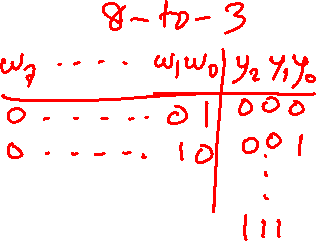 8-to-3
w7 ..... w1 w0 | y2 y1 y0
0 ...... 0 1 | 0 0 0
0 ...... 1 0 | 0 0 1
⋮
1 1 1